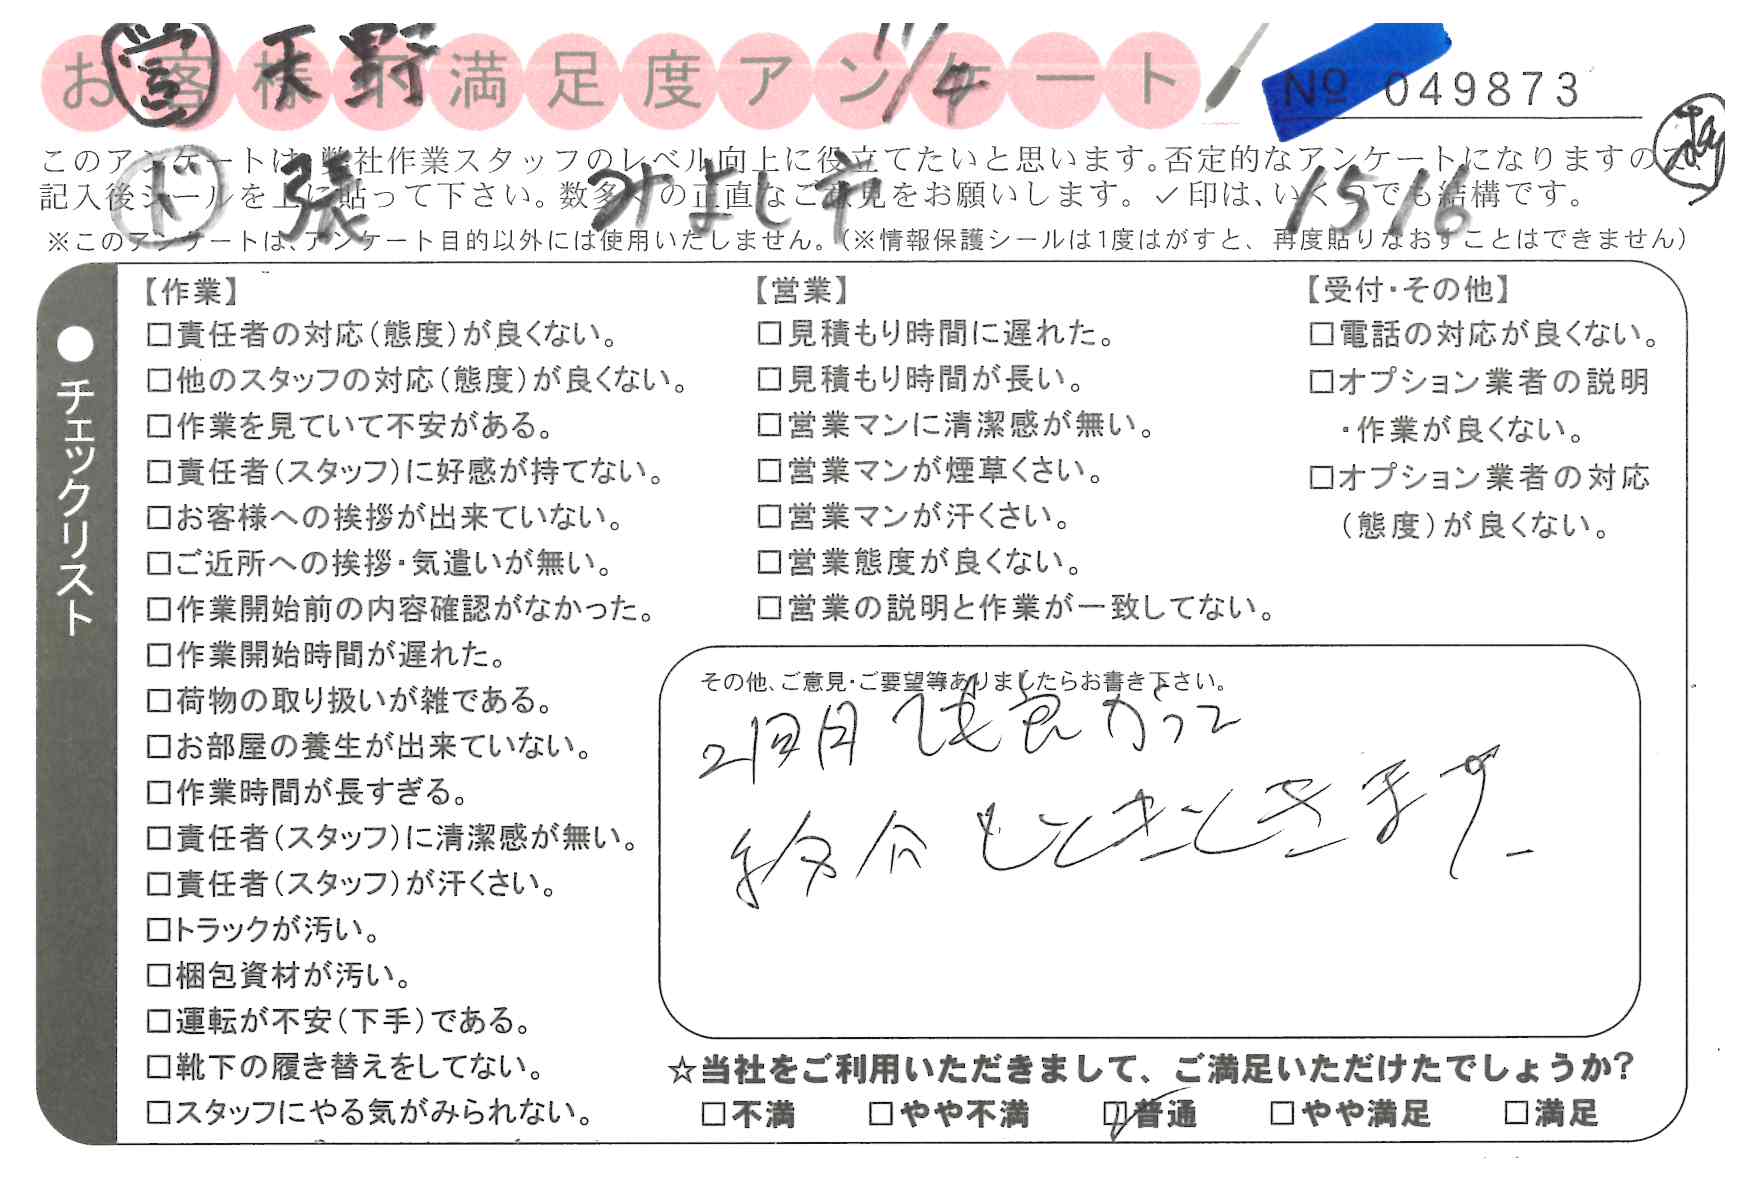 お客様の満足度アンケート
営 天野 11/4
№ 049873
このアンケートは、弊社作業スタッフのレベル向上に役立てたいと思います。否定的なアンケートになりますので、
記入後シールを上に貼って下さい。数多くの正直なご意見をお願いします。✓印は、いくつでも結構です。
ド 張 みよし市 1516
※このアンケートは、アンケート目的以外には使用いたしません。(※情報保護シールは1度はがすと、再度貼りなおすことはできません)
●チェックリスト
【作業】
□責任者の対応(態度)が良くない。
□他のスタッフの対応(態度)が良くない。
□作業を見ていて不安がある。
□責任者(スタッフ)に好感が持てない。
□お客様への挨拶が出来ていない。
□ご近所への挨拶・気遣いが無い。
□作業開始前の内容確認がなかった。
□作業開始時間が遅れた。
□荷物の取り扱いが雑である。
□お部屋の養生が出来ていない。
□作業時間が長すぎる。
□責任者(スタッフ)に清潔感が無い。
□責任者(スタッフ)が汗くさい。
□トラックが汚い。
□梱包資材が汚い。
□運転が不安(下手)である。
□靴下の履き替えをしてない。
□スタッフにやる気がみられない。
【営業】
□見積もり時間に遅れた。
□見積もり時間が長い。
□営業マンに清潔感が無い。
□営業マンが煙草くさい。
□営業マンが汗くさい。
□営業態度が良くない。
□営業の説明と作業が一致してない。
【受付・その他】
□電話の対応が良くない。
□オプション業者の説明
・作業が良くない。
□オプション業者の対応
(態度)が良くない。
その他、ご意見・ご要望等ありましたらお書き下さい。
2回目
☆当社をご利用いただきまして、ご満足いただけたでしょうか?
□不満 □やや不満 ☑普通 □やや満足 □満足